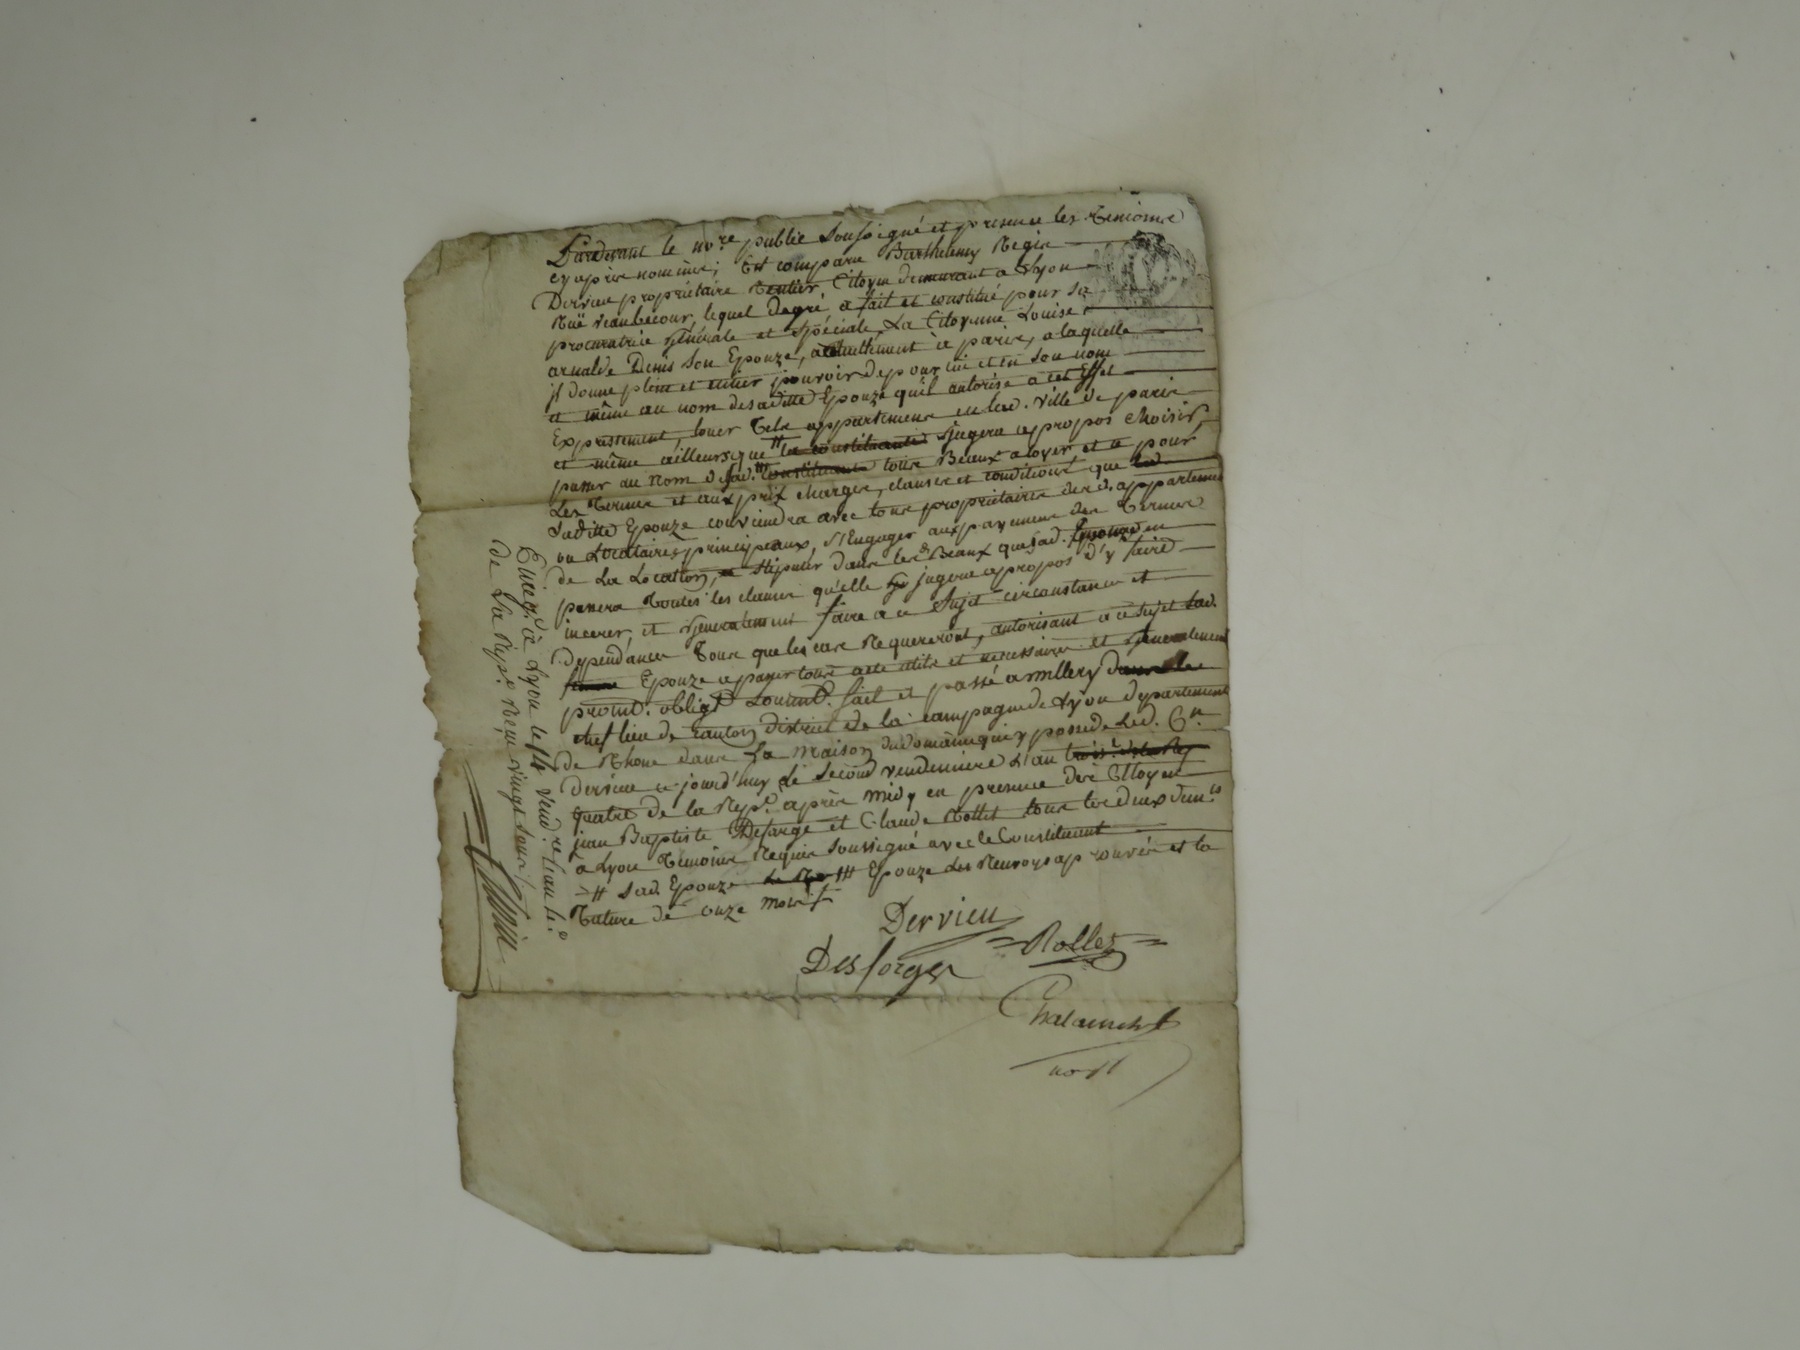 Pardevant le no.re public soussigné et presence les temoins
cy aprés nommés; Est comparu Barthelemy Regis
Dervieu propriétaire Rentier Citoyen demeurant a Lyon
Ruë Vaubecour, lequel degré a fait et constitué pour sa
procuratrice générale et spéciale, La Citoyenne Louise
Denis son Epouze, actuellement à paris, a laquelle
il donne plein et entier pouvoir de pour lui et en son nom
et même au nom de sa ditte Epouze qu'il autorise a cet Effet
Expressement, louer tels appartemens en lad. ville de paris
et même ailleurs que # la constituante jugera apropos choisir,
passer au nom de lad. # constituante tous Beaux a loyer et a pour
Les termes et aux prix charges, clauses et conditions que lad
sa ditte Epouze conviendra avec tous propriétaires desd. appartemens
ou Locataires principeaux, s'Engager aux payemens des termes
de La Location, stipuler dans lesd Beaux que sad. Epouze en
passera toutes les clauses qu'elle jugera apropos d'y faire
incerer, et généralement faire a ce sujet circonstances et
dependances tous que les cas Requereront, autorisant a ce sujet sad.
femme Epouze a passer tous acte utils et necessaires et généralement
promt. obligt. soumt. fait et passé a millery dans le
chef lieu de Canton District de la campagne de Lyon departement
de Rhone dans La maison du domaine qui y possede Led. C.en
Dervieu ce jourd'huy le second vendemiere L'an
quatre de la Rep.e après midy en presence des Citoyens
jean Baptiste Desarge et Claude Rollet tous les deux
a Lyon temoins Requis soussigné avec le Constituant
# sad. Epouze # Epouze des Renvoys aprouvés et la
Rature de onze mots
Dervieu
Desforges Rollet
Chalamel
not
Enreg.é à Lyon le 14 vend.re l'an 4.e
de La Rep.e Reçu vingt sous